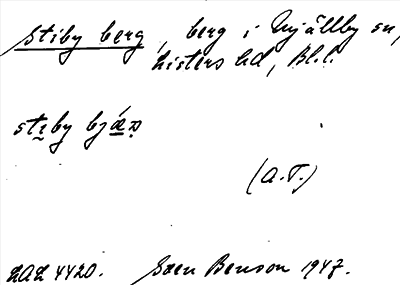 Stiby berg, berg i Mjällby sn,
Listers hd, Bl.l.
stı̣by bjǽ̠ṛ
(A.T.)
LAL 4420. Sven Benson 1947.